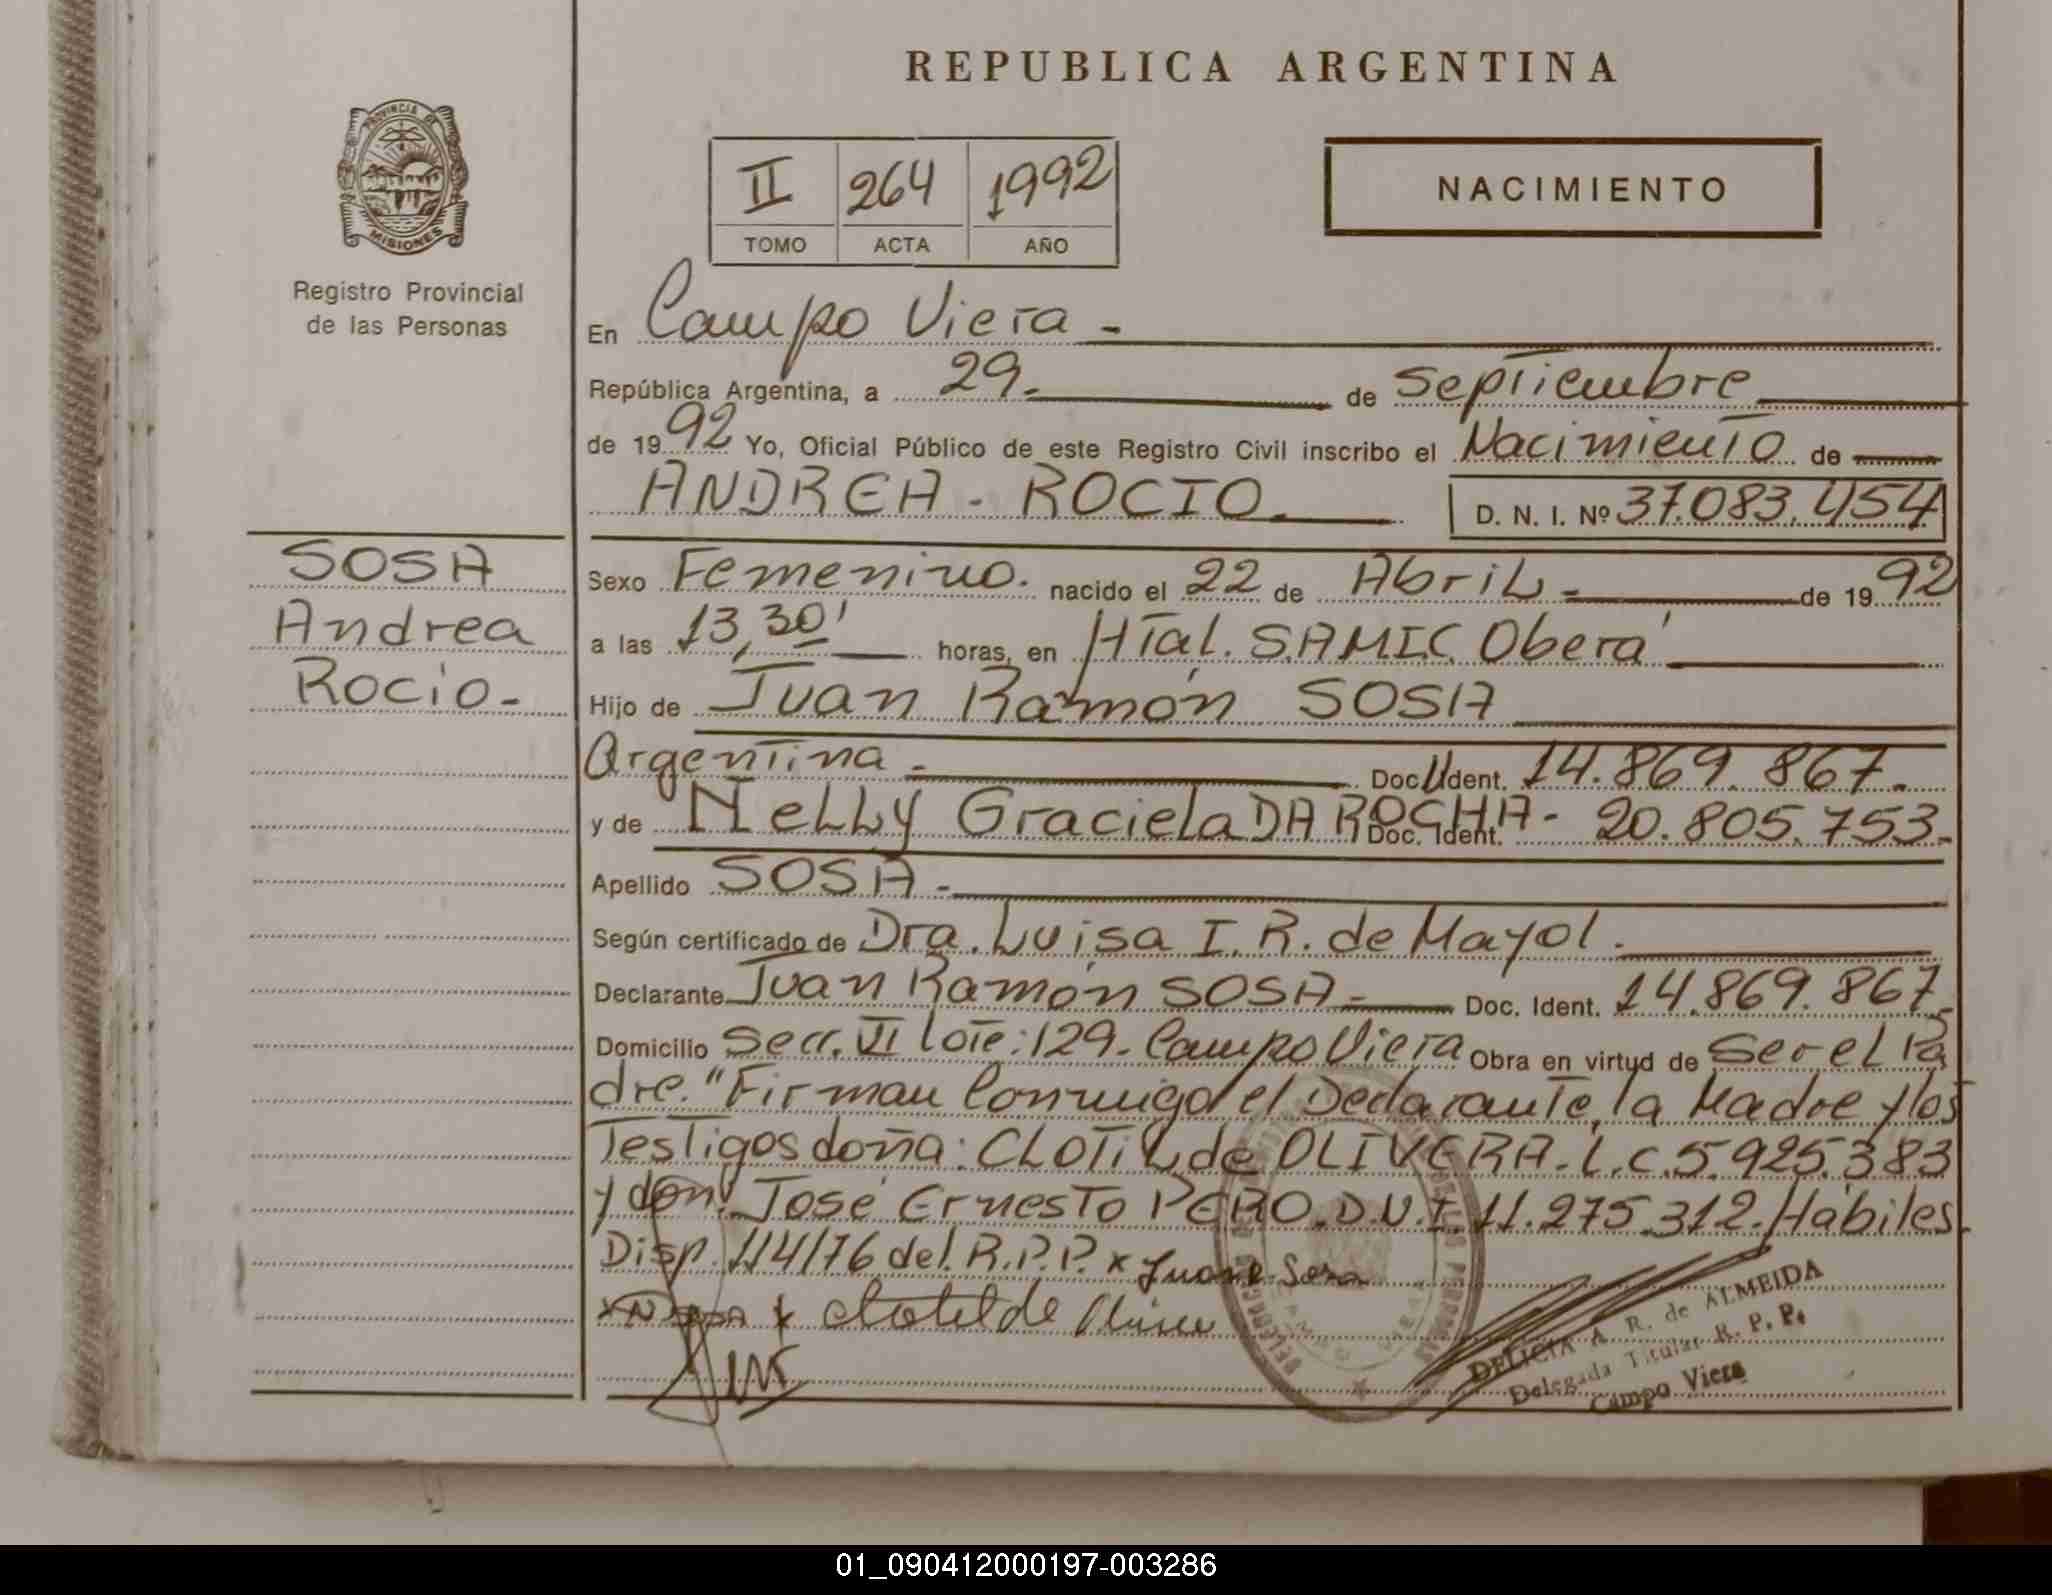 REPUBLICA ARGENTINA
PROVINCIA DE
MISIONES
Registro Provincial
de las Personas
II 264 1992
TOMO ACTA AÑO
NACIMIENTO
En Campo Viera -
República Argentina, a 29- de Septiembre
de 1992 Yo, Oficial Público de este Registro Civil inscribo el Nacimiento de
ANDREA - ROCIO- D. N. I. Nº 37.083.454
SOSA
Andrea
Rocio-
Sexo Femenino. nacido el 22 de Abril- de 1992
a las 13,30' horas, en Htal. S.A.M.I.C. Oberá
Hijo de Juan Ramón SOSA
Argentina - Doc. Ident. 14.869.867.
y de Nelly Graciela DA ROCHA- Doc. Ident. 20.805.753-
Apellido SOSA-
Según certificado de Dra. Luisa I. R. de Mayol.
Declarante Juan Ramón SOSA- Doc. Ident. 14.869.867-
Domicilio Secc. VI lote: 129- Campo Viera Obra en virtud de Ser el Pa
dre. "Firman Conmigo el Declarante, la Madre y los
Testigos doña: CLOTILde OLIVERA. L.C. 5.925.383
y don: José Ernesto PERO. D.N.I. 11.275.312. Hábiles
Disp. 114/76 del R.P.P. x Juan Sosa
x N SOSA x Clotilde
DELICIA A. R. de ALMEIDA
Delegada Titular R. P. P.
Campo Viera
01_090412000197-003286